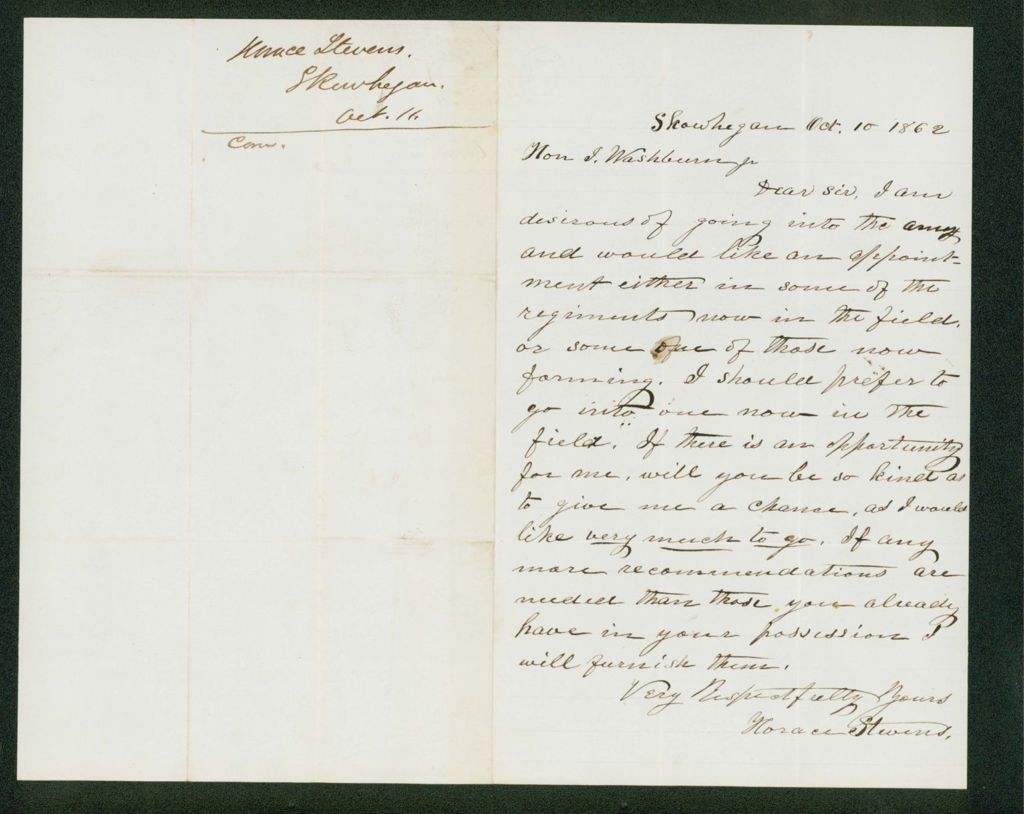 Horace Stevens.
Skowhegan.
Oct. 11.
Com.
Skowhegan Oct. 10 1862
Hon I. Washburn jr
Dear sir, I am
desirous of going into the army
and would like an appoint-
ment either in some of the
regiments now in the field,
or some one of those now
forming. I should prefer to
go into one now in the
field. If there is an opportunity
for me, will you be so kind as
to give me a chance, as I would
like very much to go. If any
more recommendations are
needed than those you already
have in your possession I
will furnish them.
Very Respectfully Yours
Horace Stevens.